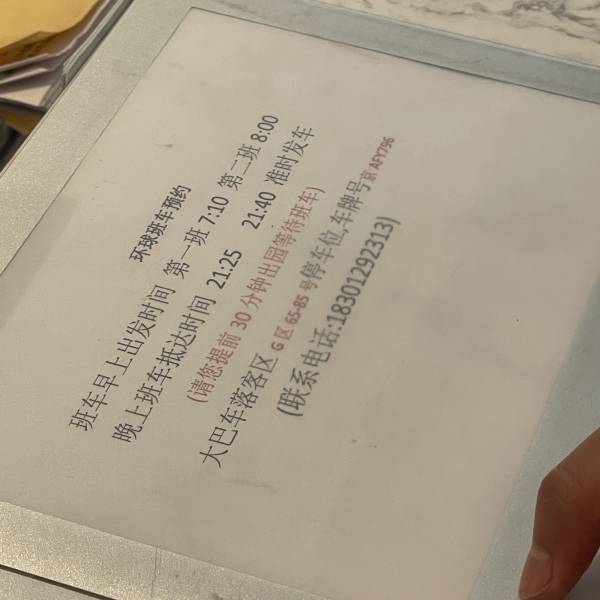 环球班车预约
班车早上出发时间 第一班 7:10 第二班 8:00
晚上班车抵达时间 21:25 21:40 准时发车
(请您提前 30 分钟出园等待班车)
大巴车落客区 G 区 65-85 号停车位,车牌号京 AFY796
(联系电话:18301292313)